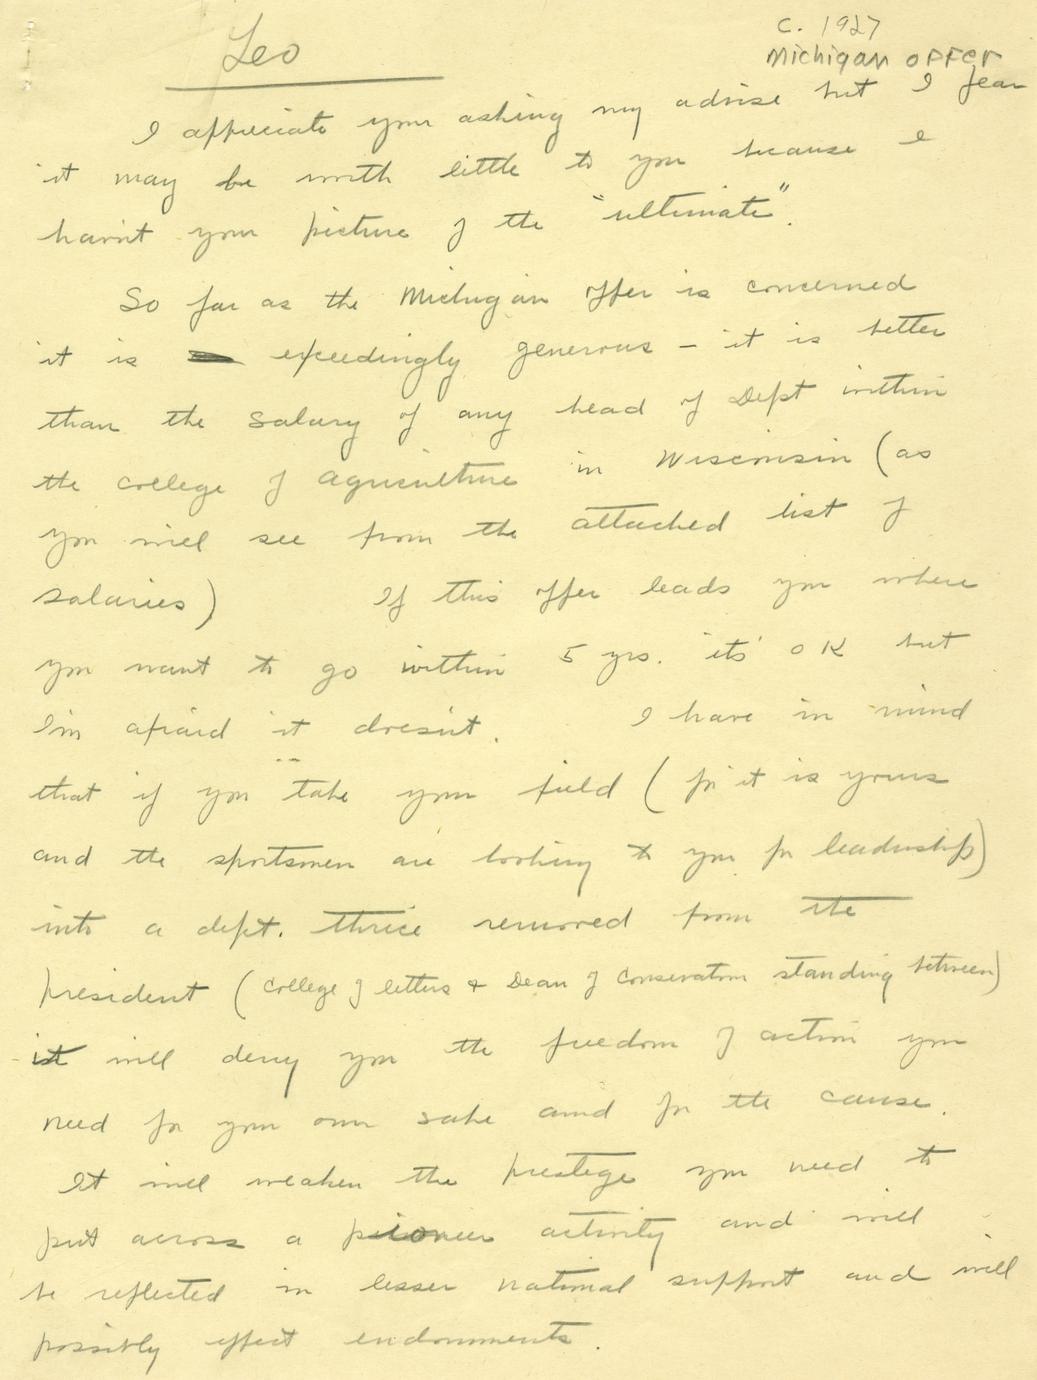 c. 1927
Michigan offer
Leo
I appreciate your asking my advise but I fear
it may be worth little to you because I
havn't your picture of the "ultimate".
So far as the Michigan offer is concerned
it is exceedingly generous – it is better
than the salary of any head of Dept within
the college of agriculture in Wisconsin (as
you will see from the attached list of
salaries) If this offer leads you where
you want to go within 5 yrs. it's OK but
I'm afraid it doesn't. I have in mind
that if you take your field (for it is yours
and the sportsmen are looking to you for leadership)
into a dept. thrice removed from the
president (college of letters & Dean of Conservation standing between)
it will deny you the freedom of action you
need for your own sake and for the cause.
It will weaken the prestege you need to
put across a pioneer activity and will
be reflected in lesser national support and will
possibly effect endowments.